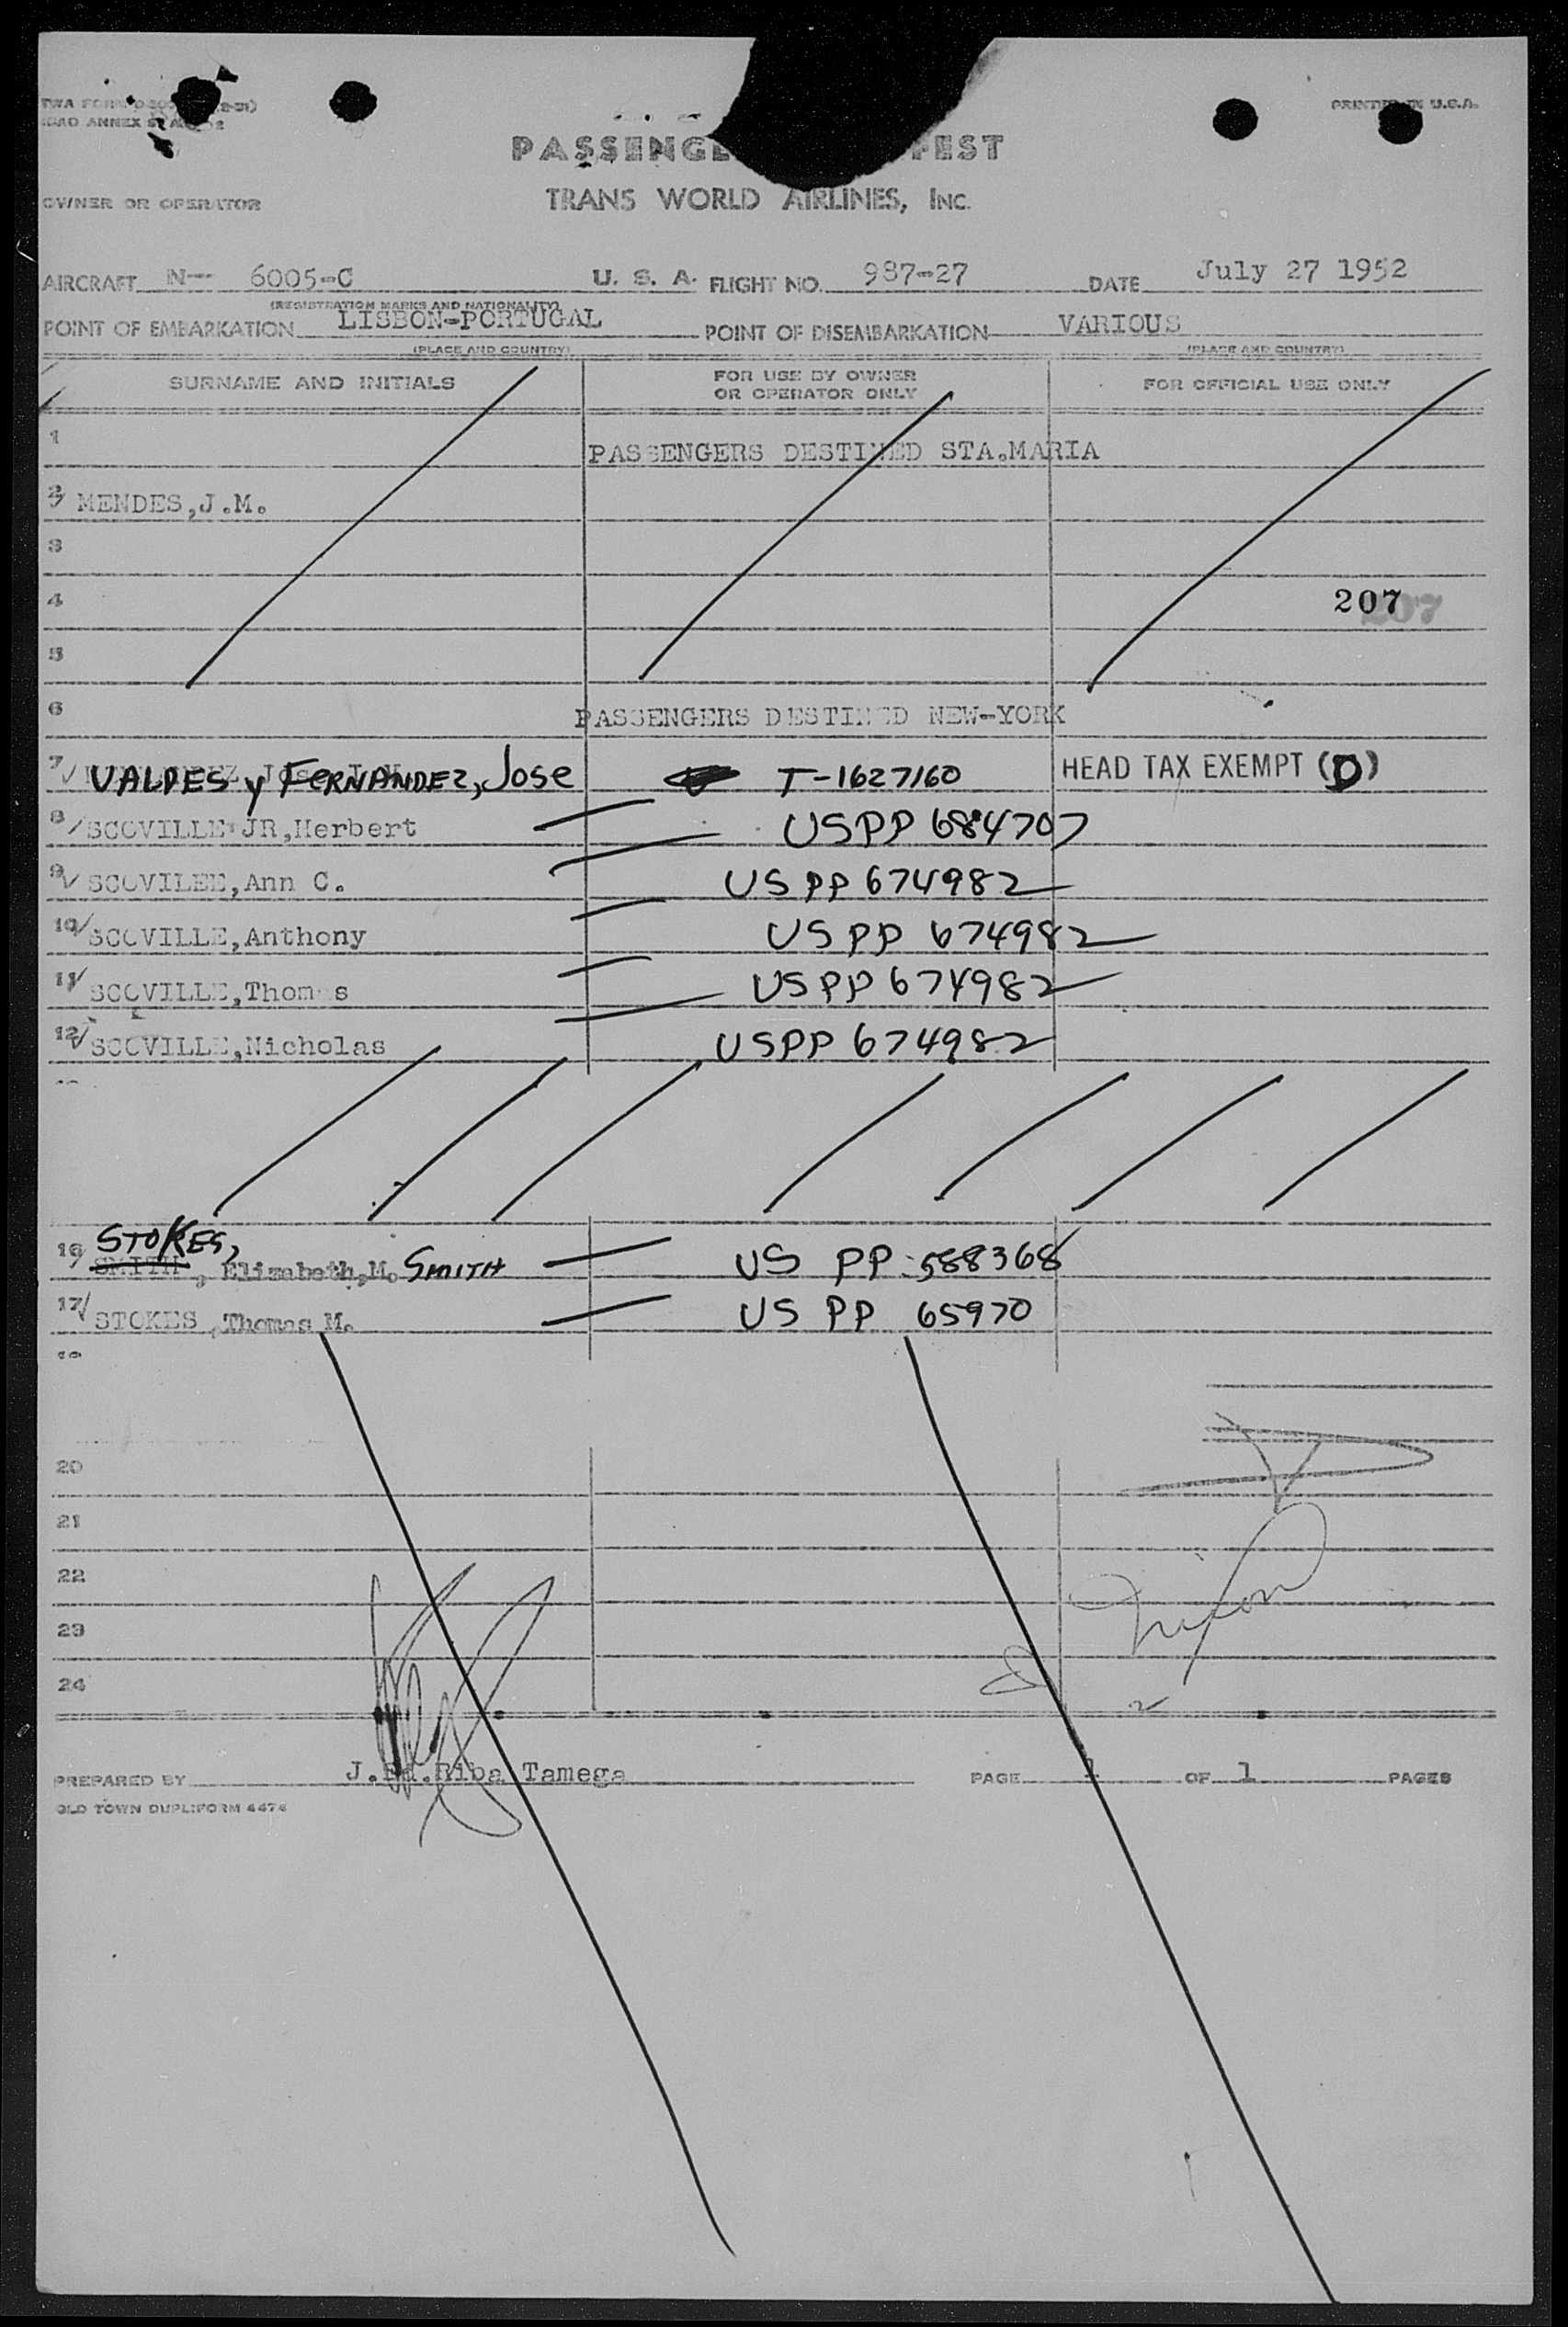 PRINTED IN U.S.A.
PASSENGE FEST
OWNER OR OPERATOR
TRANS WORLD AIRLINES, INC.
AIRCRAFT N-- 6005-C U. S. A. FLIGHT NO. 987-27 DATE July 27 1952
(REGISTRATION MARKS AND NATIONALITY)
POINT OF EMBARKATION LISBON-PORTUGAL POINT OF DISEMBARKATION VARIOUS
(PLACE AND COUNTRY) (PLACE AND COUNTRY)
SURNAME AND INITIALS FOR USE BY OWNER OR OPERATOR ONLY FOR OFFICIAL USE ONLY
1 PASSENGERS DESTINED STA.MARIA
2 MENDES,J.M.
3
4 207
5
6 PASSENGERS DESTINED NEW-YORK
7 VALDES y FERNANDEZ, Jose T-1627160 HEAD TAX EXEMPT (D)
8 SCOVILLE JR,Herbert USPP 684707
9 SCOVILEE,Ann C. US PP 674982
10 SCOVILLE,Anthony US PP 674982
11 SCOVILLE,Thomas US PP 674982
12 SCOVILLE,Nicholas USPP 674982
STOKES,
16 SMITH, Elizabeth,M. SMITH US PP 588368
17 STOKES,Thomas M. US PP 65970
20
21
22
23
24
PREPARED BY J.Ed.Riba Tamega PAGE 1 OF 1 PAGES
OLD TOWN DUPLIFORM 4474